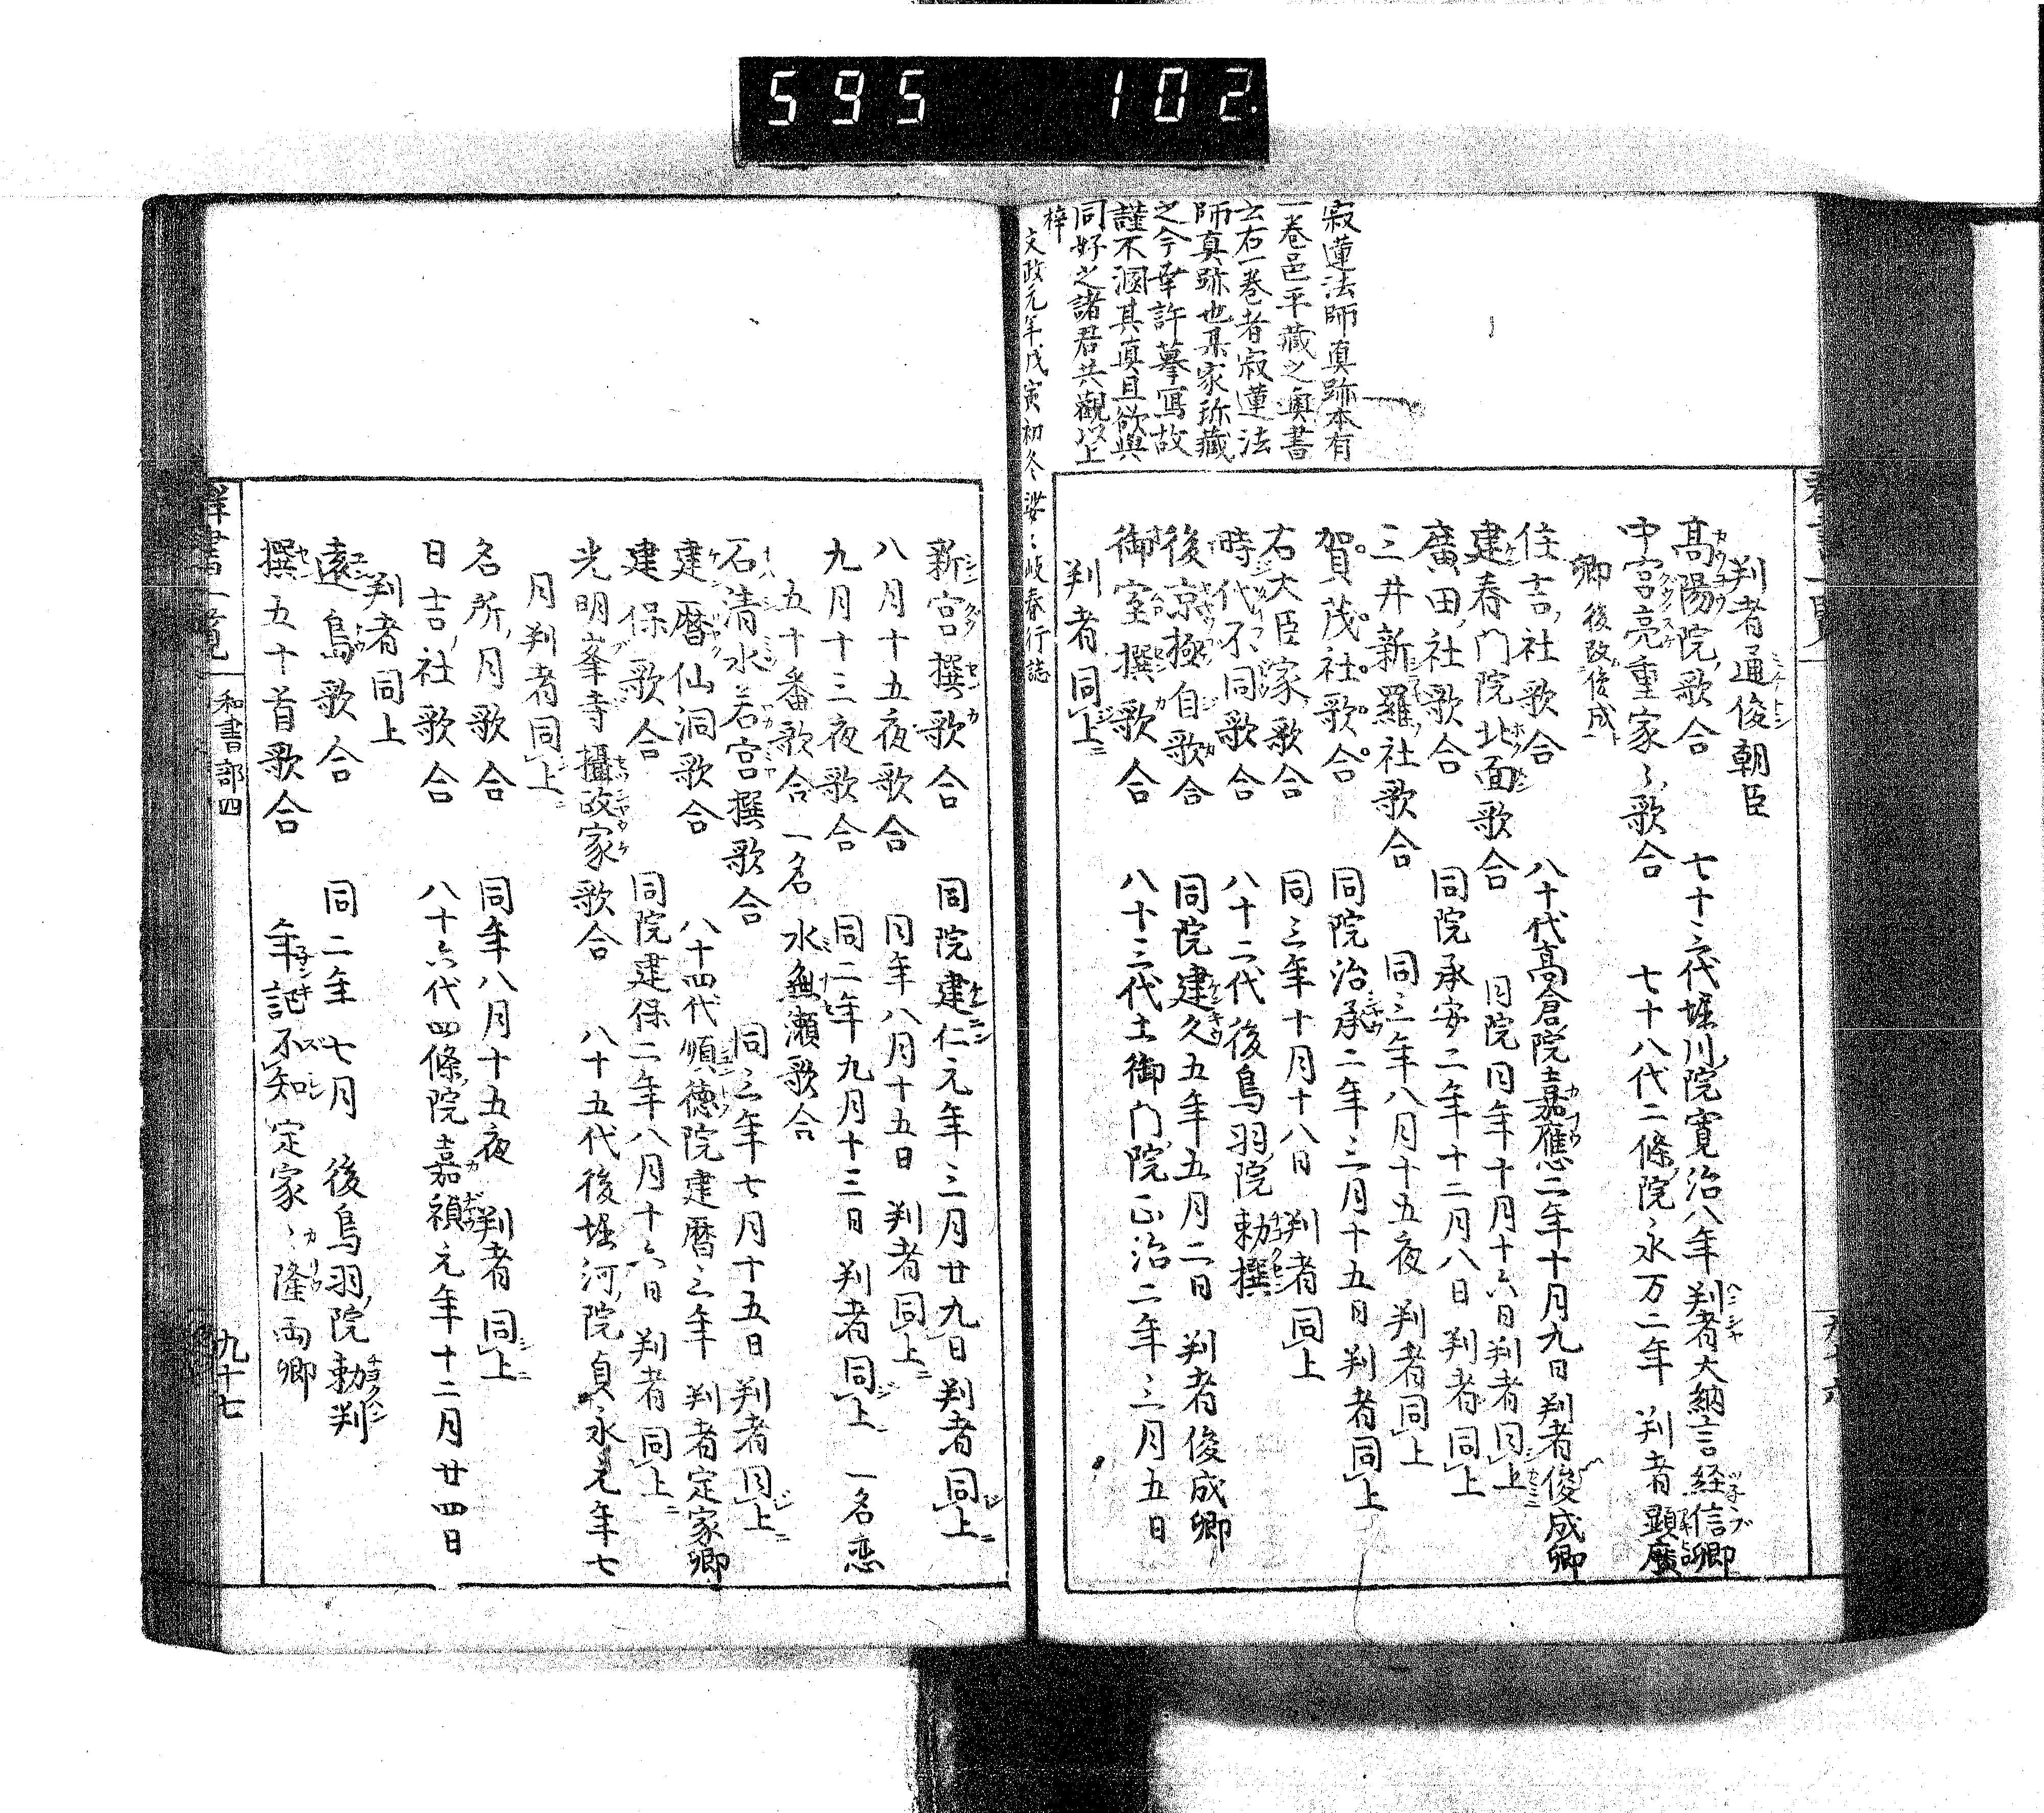 595 102
寂蓮法師真跡本有
一巻邑平蔵之奥書
云右一巻者寂蓮法
師真跡也某家珎蔵
之今幸許摹寫故
謹不溷其真且欲與
同好之諸君共觀以上
梓
文政元年戊寅初冬 岐春行誌
判者通俊朝臣
髙陽院歌合 七十三代堀川院寛治八年 判者大納言経信卿
中宮亮重家々歌合 七十八代二條院永万二年 判者顕廣
卿 後改俊成
住吉社歌合 八十代髙倉院嘉應二年十月九日 判者俊成卿
建春门院北面歌合 同院同年十月十六日 判者同上
廣田社歌合 同院承安二年十二月八日 判者同上
三井新羅社歌合 同三年八月十五夜 判者同上
賀茂社歌合 同院治承二年三月十五日 判者同上
右大臣家歌合 同三年十月十八日 判者同上
時代不同歌合 八十二代後鳥羽院勅撰
後京極自歌合 同院建久五年五月二日 判者俊成卿
御室撰歌合 八十三代土御门院正治二年三月五日
判者同上
新宮撰歌合 同院建仁元年三月廿九日 判者同上
八月十五夜歌合 同年八月十五日 判者同上
九月十三夜歌合 同二年九月十三日 判者同上 一名恋
五十番歌合 一名 水無瀬歌合
石清水若宮撰歌合 同三年七月十五日 判者同上
建暦仙洞歌合 八十四代順徳院建暦三年 判者定家卿
建保歌合 同院建保二年八月十六日 判者同上
光明峯寺攝政家歌合 八十五代後堀河院貞永元年七
月 判者同上
名所月歌合 同年八月十五夜 判者同上
日吉社歌合 八十六代四條院嘉禎元年十二月廿四日
判者同上
遠島歌合 同二年七月 後鳥羽院勅判
撰五十首歌合 年記不知 定家 家隆両卿
群書一覧 和書部四 九十七